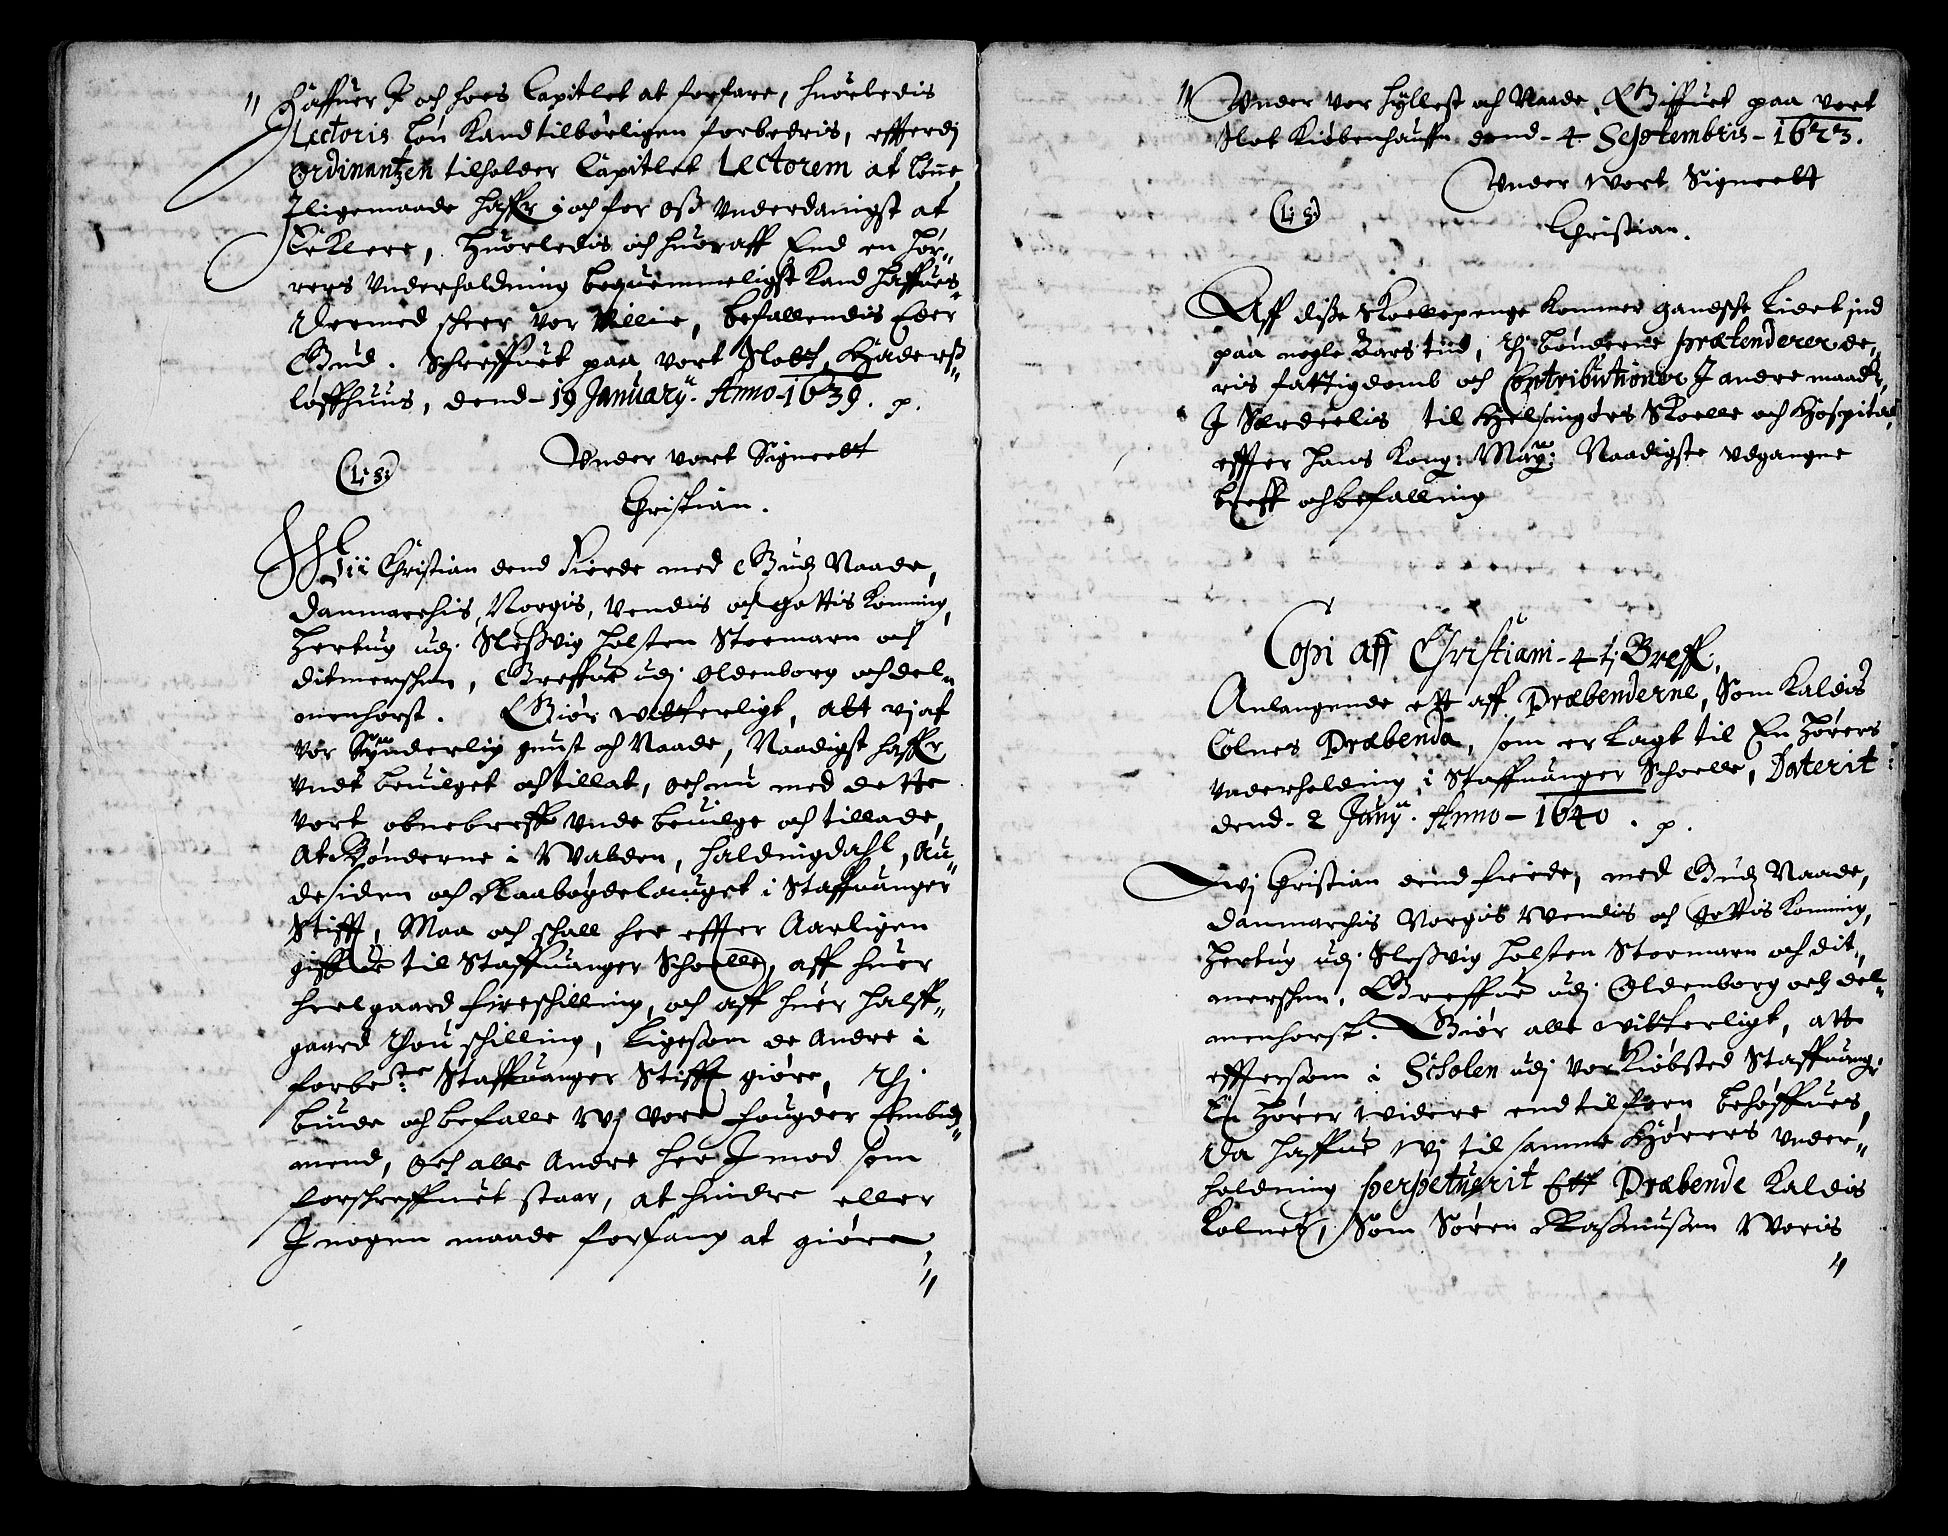 Haffuer I och hoes Capitlet at forfare, huorledis
Lectoris løn Kand tilbørligen forbedris, efftersi
ordinantzen tilholder Capitlet Lectorem at lønne,
Iligemaade haffr i och for oss Vnderdanigst at
Erklere, Huorledis och huoraff End en Hør„
rers Vnderholdning bequemmeligst Kand haffues„
Dermed scheer vor Villie, befallendis Eder
Gud. Schreffuet paa vort Slott, Haders„
løffhuus, dend - 19 January. Anno - 1639. p.
Vnder vort Signeet
(L: S:)
Christian.
Wii Christian dend Fierde med Gudz Naade,
Danmarchis, Norgis, Vendis och Gottis Konning,
Hertug udj Slesswig Holsten Stormarn och
Ditmerschen, Greffue udj Oldenborg och del„
menhorst. Giør witterligt, att vj af
vor Synderlig gunst och Naade, Naadigst haffr
vndt beuilget och tillat, och nu med dette
vort obnebreff vnde beuilge och tillade,
At Bønderne i Walden, Haldingdahl, Au„
desiden och Raabøgdelauget i Staffuanger
Stifft, Maa och schall her effter Aarligen
giffue til Staffuanger Scholle, aff huer
heelgaard fire schilling, och aff huer halff„
gaard thou schilling, ligesom de Andre i
forbete: Staffuanger Stifft giøre, Thj
biude och befalle Wj vore fougder Embidz„
mend, och alle Andre her I mod som
forschreffuet staar, at hindre eller
I nogen maade forfang at giøre
„
„ Vnder vor Hyllest och Naade, Giffuet paa vort
Slot Kiøbenhauffn dend - 4. Septembris - 1623.
Vnder wort Signeett
(L: S:)
Christian.
Aff disse Skollepenge Kommer gandsche lidet ind
paa nogle Aars tiid, thj bønderne prætenderer de„
ris fattigdomb och Contributioner I andre maader,
I Særdeelis til Helsingørs Skoelle och Hospital,
effter Hans Kong: May: Naadigste udgangne
breff och befalling
Copi aff Christiani - 4 tj Breff,
Anlangende ett aff Præbenderne, Som Kaldis
Colnes Præbenda, som er lagt til En Hørers
vnderholding i Staffuanger Schoelle, Daterit
dend - 2 Jany. Anno - 1640. p.
Wj Christian dend fierde, med Gudz Naade,
Danmarchis Norgis Wendis och Gottis Konning,
Hertug udj Slesswig Holsten Stormarn och Dit„
merschen, Greffue udj Oldenborg och Del„
menhorst. Giør alle witterligt, att
efftersom i Scholen udj vor Kiøbsted Staffuang:
En Hører widere end tilforn behøffues,
Da haffue wj til samme Hørers vnder„
holdning perpetuerit Ett Præbende Kaldis
Kolnes, Som Søren Rasmussen Woris
„